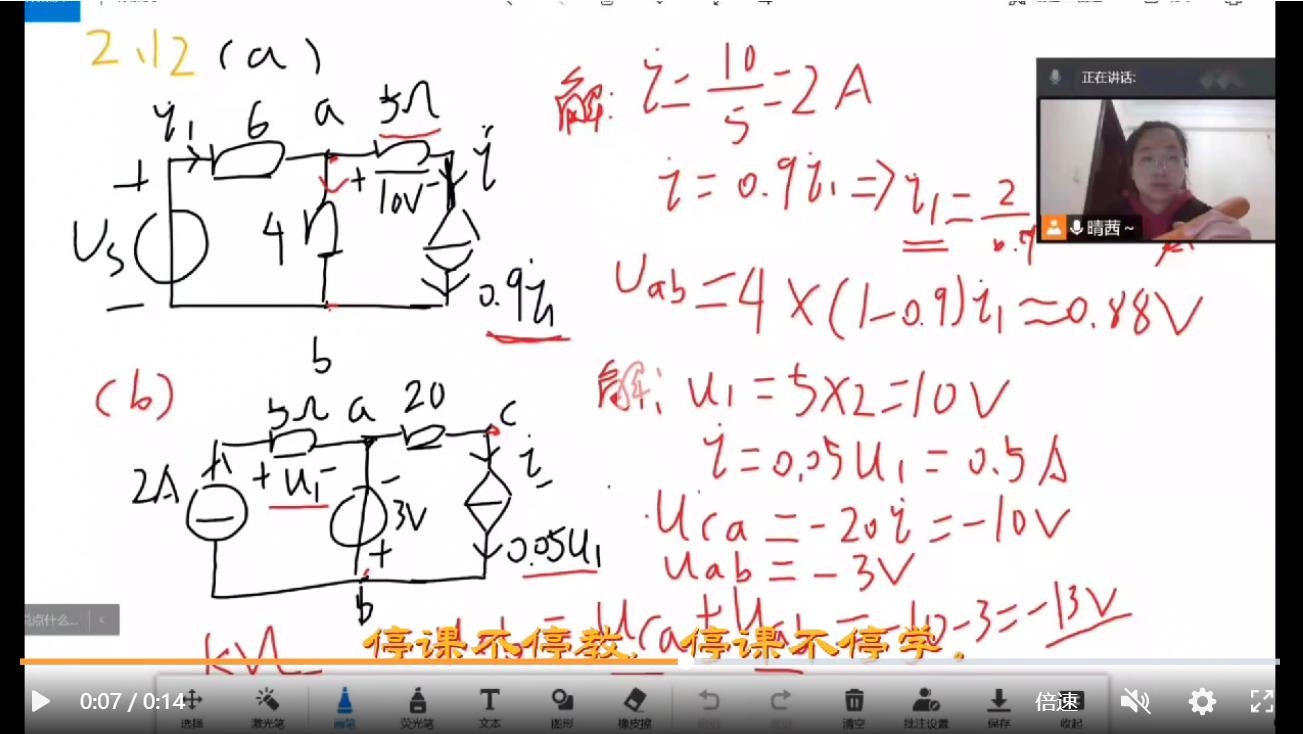 2.12 (a)
i₁ 6 a 5Ω i
+ 10V -
+
Us
-
4
0.9i₁
b
解: i = 10/5 = 2A
i = 0.9i₁ => i₁ = 2/0.9
Uab = 4 × (1-0.9)i₁ ≈ 0.88V
正在讲话:
晴茜~
(b)
5Ω a 20 c
2A + u₁ - - i
3V
+
0.05u₁
b
解: u₁ = 5×2 = 10V
i = 0.05u₁ = 0.5A
uca = -20i = -10V
uab = -3V
= uca + uab = -10-3 = -13V
KVL
说点什么...
停课不停教，停课不停学。
0:07 / 0:14
倍速
选择 激光笔 画笔 荧光笔 文本 图形 橡皮擦 撤销 重做 清空 批注设置 保存 收起